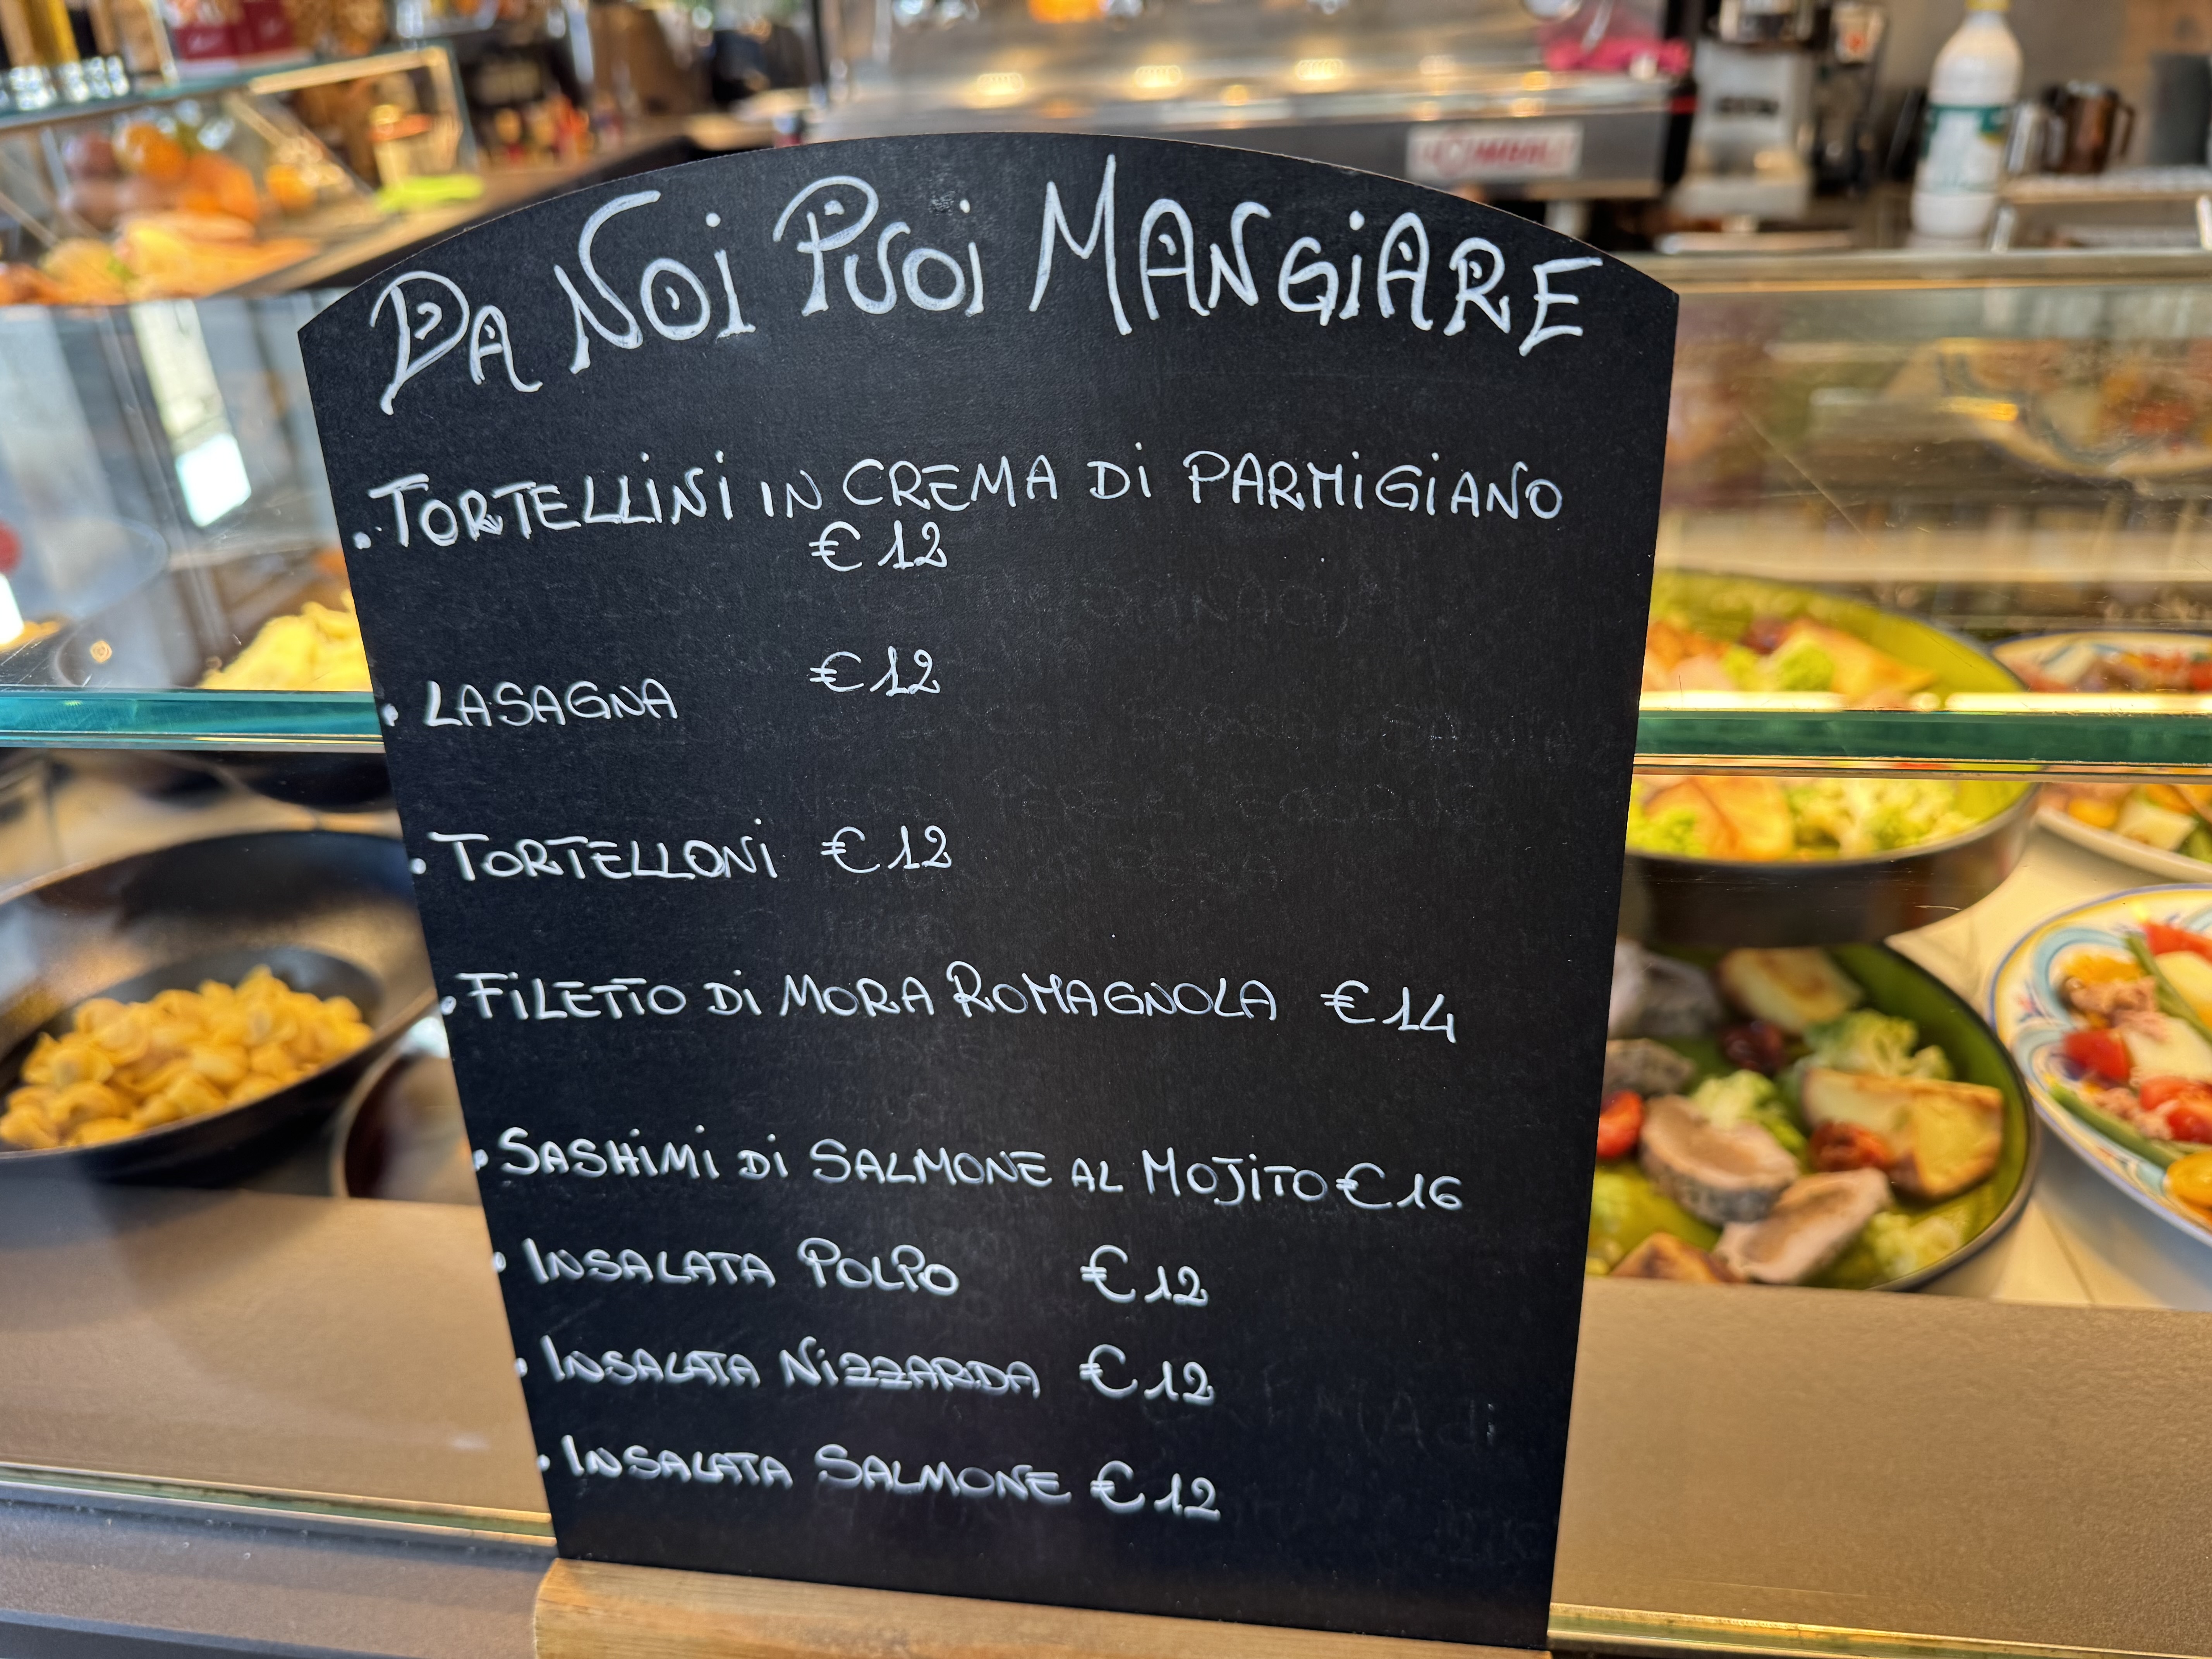 DA NOI PUOI MANGIARE
• TORTELLINI IN CREMA DI PARMIGIANO
€ 12
• LASAGNA € 12
• TORTELLONI € 12
• FILETTO DI MORA ROMAGNOLA € 14
• SASHIMI DI SALMONE AL MOJITO € 16
• INSALATA POLPO € 12
• INSALATA NIZZARDA € 12
• INSALATA SALMONE € 12